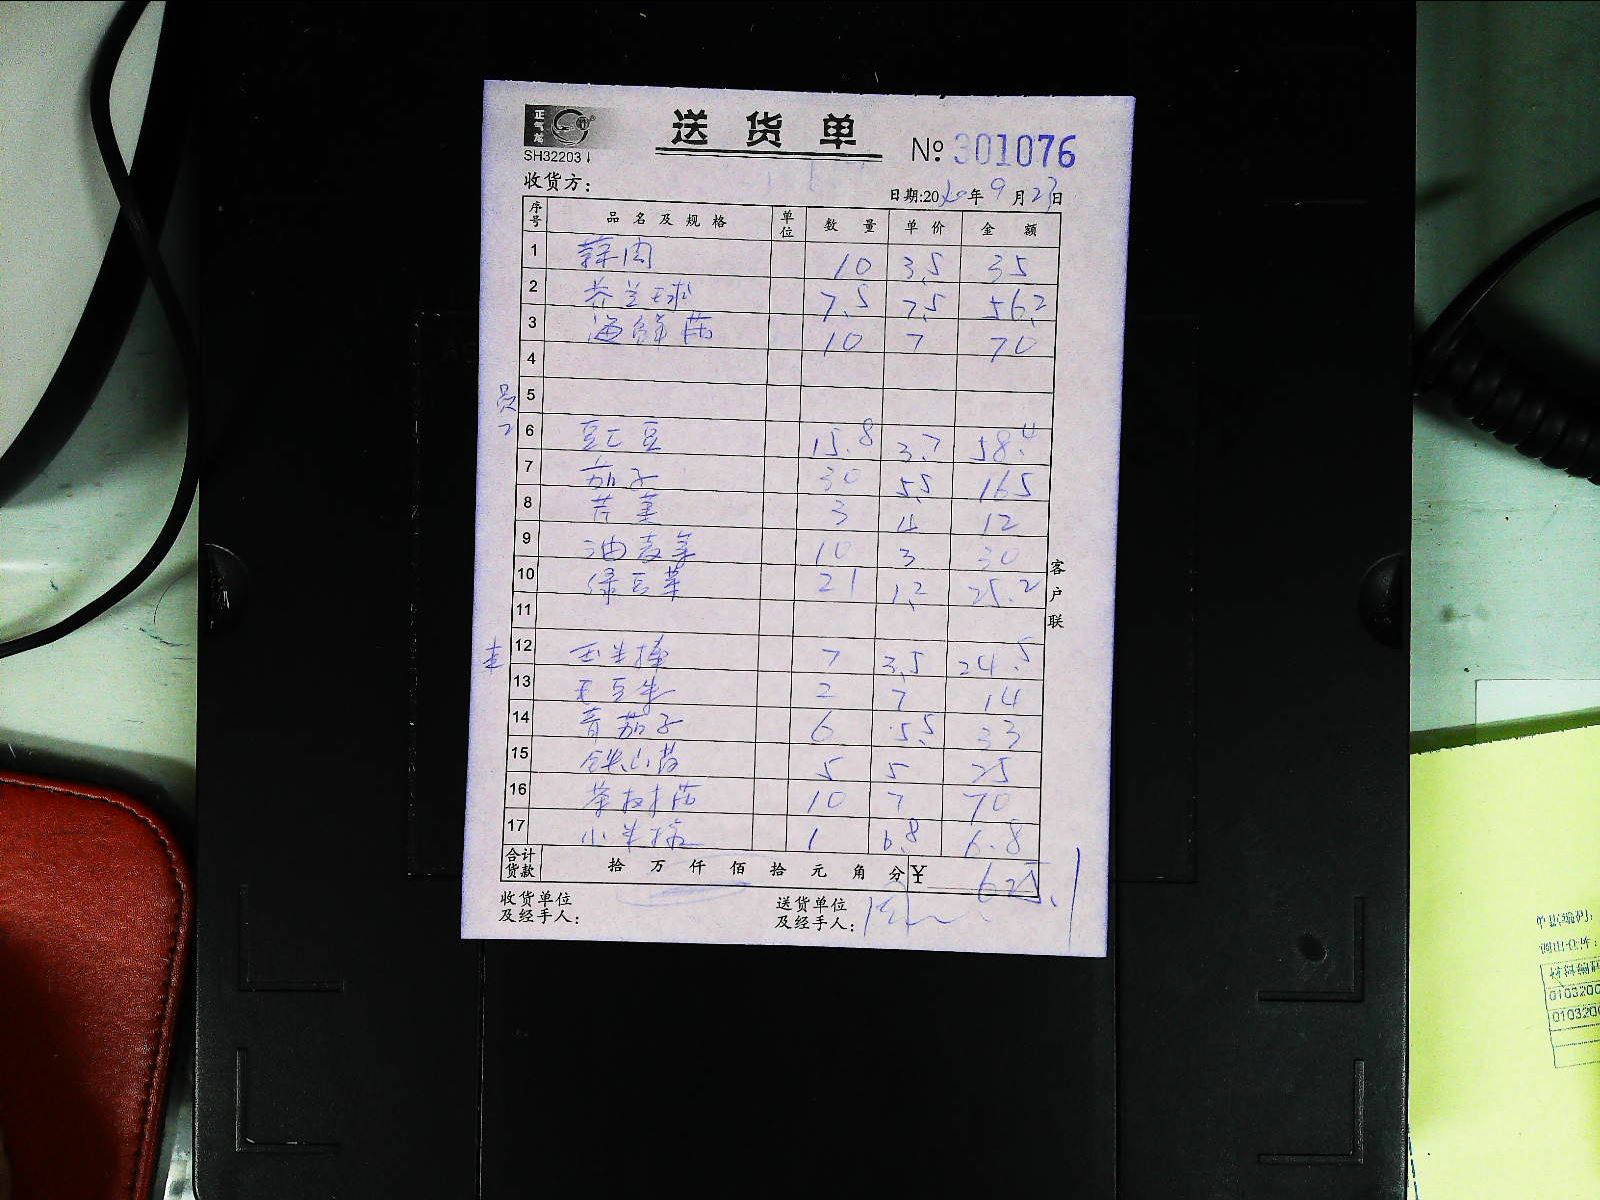 正气龙
送货单
№ 301076
SH32203
收货方：
日期:2020年9月23日
序号 品名及规格 单位 数量 单价 金额
1 蒜肉 10 3.5 35
2 芥兰球 7.5 7.5 56.2
3 海鲜菇 10 7 70
4
5
员工
6 豇豆 15.8 3.7 58.4
7 茄子 30 5.5 165
8 芹菜 3 4 12
9 油麦菜 10 3 30
10 绿豆芽 21 1.2 25.2
11
12 玉米棒 7 3.5 24.5
13 毛豆米 2 7 14
14 青茄子 6 5.5 33
15 铁山药 5 5 25
16 茶树菇 10 7 70
17 小米椒 1 6.8 6.8
合计货款 拾万仟佰拾元角分 ¥ 625.1
客户联
收货单位及经手人：
送货单位及经手人：
单据编码:
调出仓库:
0103200
0103200